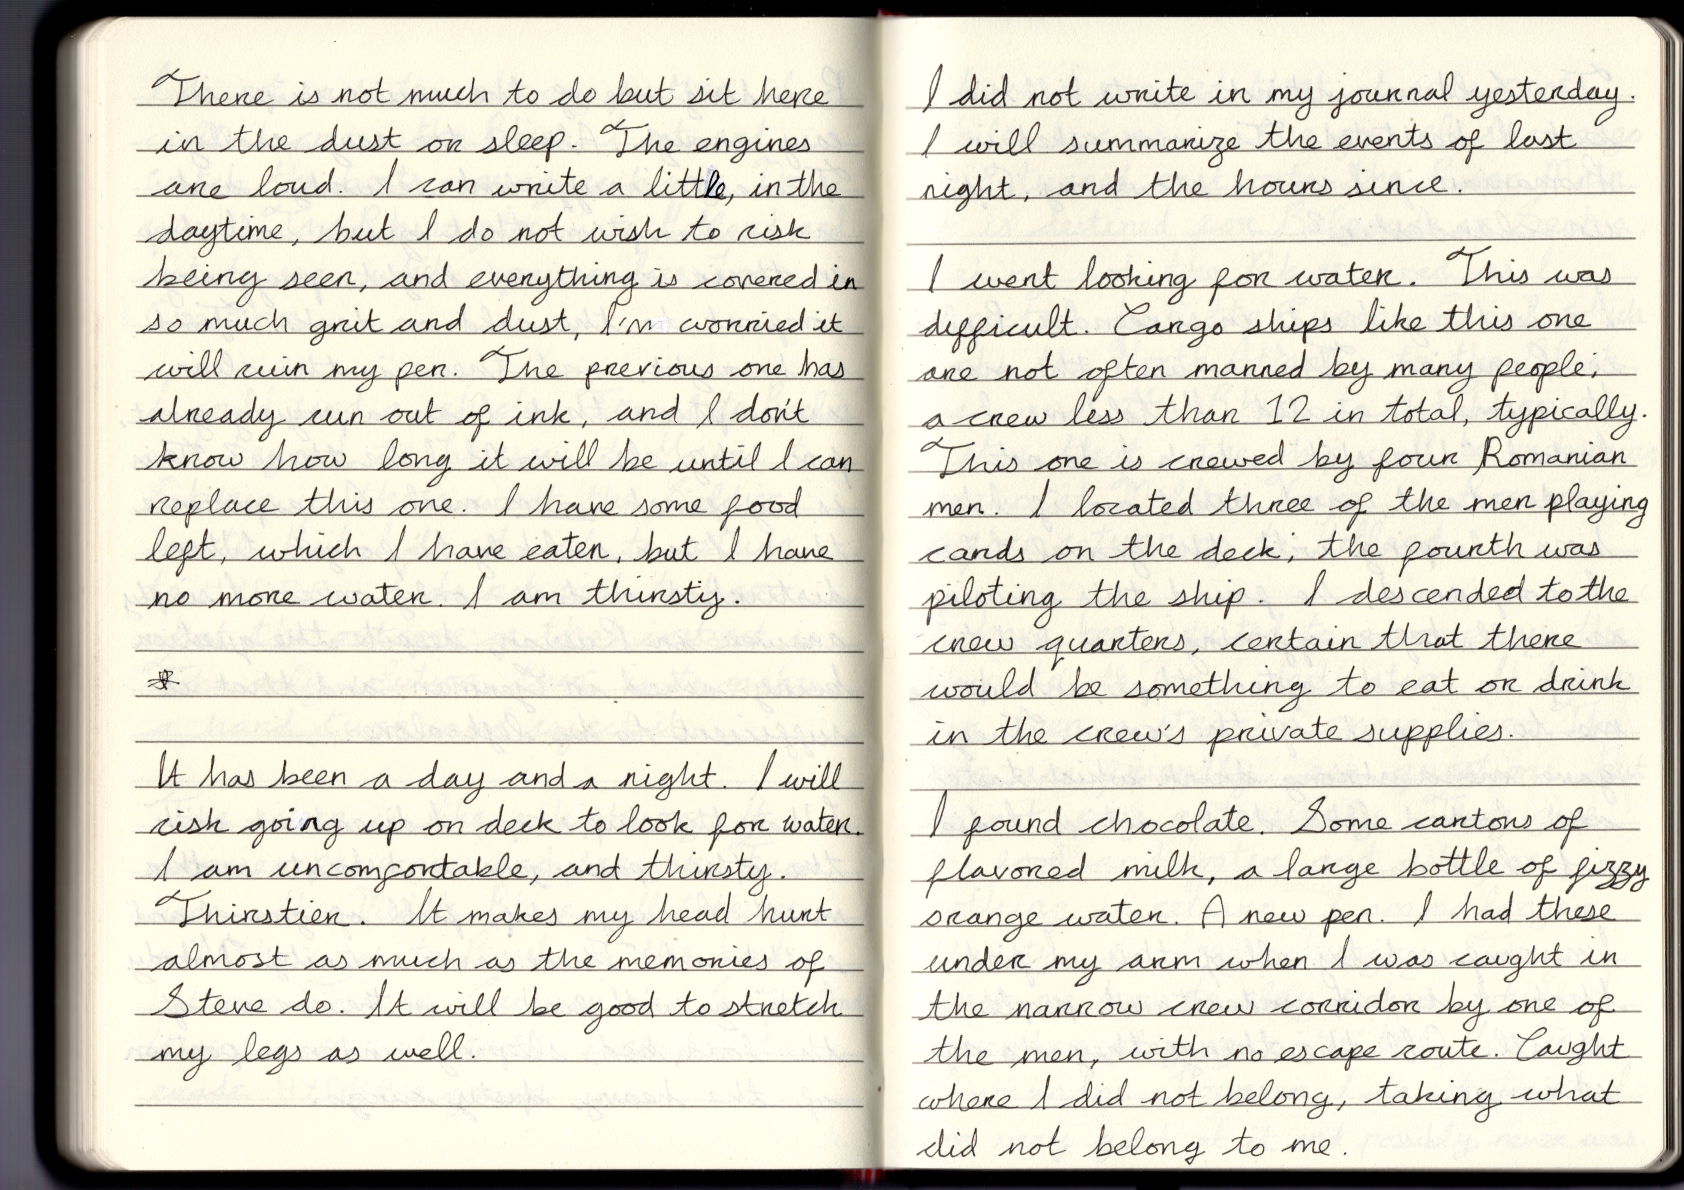 There is not much to do but sit here
in the dust or sleep. The engines
are loud. I can write a little, in the
daytime, but I do not wish to risk
being seen, and everything is covered in
so much grit and dust, I'm worried it
will ruin my pen. The previous one has
already run out of ink, and I don't
know how long it will be until I can
replace this one. I have some food
left, which I have eaten, but I have
no more water. I am thirsty.
*
It has been a day and a night. I will
risk going up on deck to look for water.
I am uncomfortable, and thirsty.
Thirstier. It makes my head hurt
almost as much as the memories of
Steve do. It will be good to stretch
my legs as well.
I did not write in my journal yesterday.
I will summarize the events of last
night, and the hours since.
I went looking for water. This was
difficult. Cargo ships like this one
are not often manned by many people;
a crew less than 12 in total, typically.
This one is crewed by four Romanian
men. I located three of the men playing
cards on the deck; the fourth was
piloting the ship. I descended to the
crew quarters, certain that there
would be something to eat or drink
in the crew's private supplies.
I found chocolate. Some cartons of
flavored milk, a large bottle of fizzy
orange water. A new pen. I had these
under my arm when I was caught in
the narrow crew corridor by one of
the men, with no escape route. Caught
where I did not belong, taking what
did not belong to me.